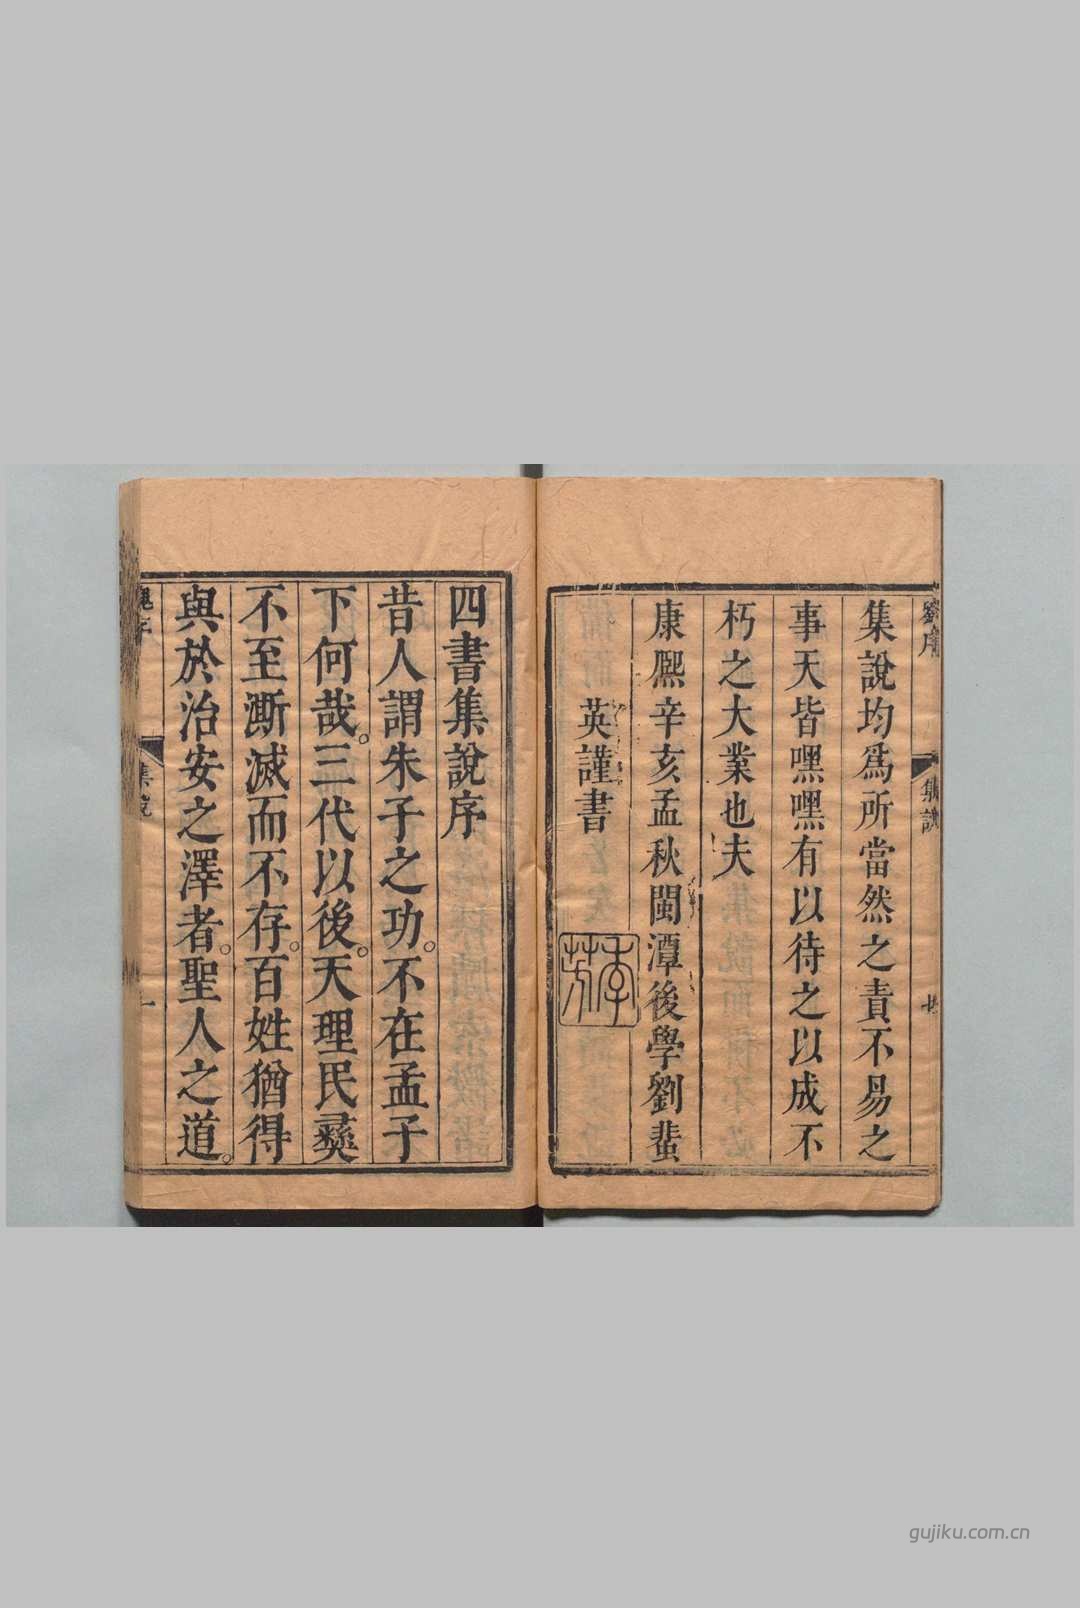 集說均爲所當然之責不易之
事天皆嘿嘿有以待之以成不
朽之大業也夫
康熙辛亥孟秋閩潭後學劉蜚
英謹書
劉序
集說
四書集說序
昔人謂朱子之功。不在孟子
下何哉。三代以後。天理民彝
不至澌滅而不存。百姓猶得
與於治安之澤者。聖人之道。
集說
gujiku.com.cn